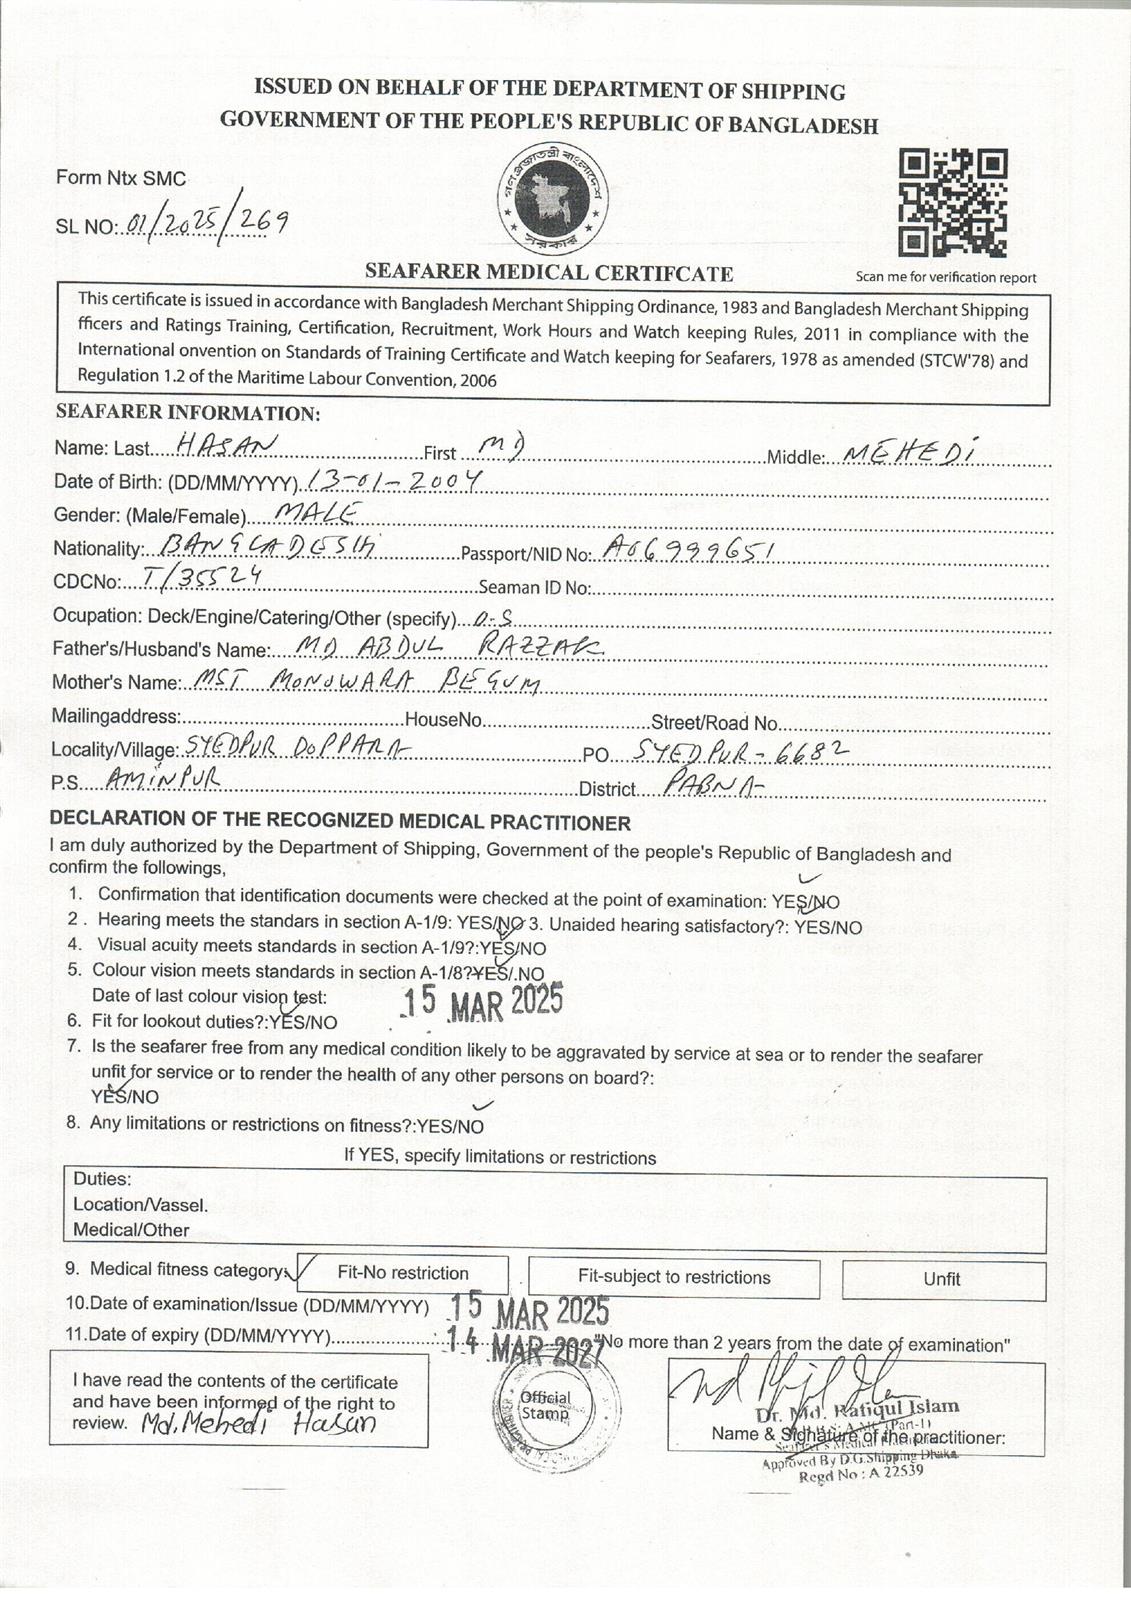 ISSUED ON BEHALF OF THE DEPARTMENT OF SHIPPING
GOVERNMENT OF THE PEOPLE'S REPUBLIC OF BANGLADESH
গণপ্রজাতন্ত্রী বাংলাদেশ
সরকার
Form Ntx SMC
SL NO: 01/2025/269
SEAFARER MEDICAL CERTIFCATE
Scan me for verification report
This certificate is issued in accordance with Bangladesh Merchant Shipping Ordinance, 1983 and Bangladesh Merchant Shipping
fficers and Ratings Training, Certification, Recruitment, Work Hours and Watch keeping Rules, 2011 in compliance with the
International onvention on Standards of Training Certificate and Watch keeping for Seafarers, 1978 as amended (STCW'78) and
Regulation 1.2 of the Maritime Labour Convention, 2006
SEAFARER INFORMATION:
Name: Last HASAN First MD Middle: MEHEDi
Date of Birth: (DD/MM/YYYY) 13-01-2004
Gender: (Male/Female) MALE
Nationality: BANGLADESHi Passport/NID No: A06999651
CDCNo: T/35524 Seaman ID No:
Ocupation: Deck/Engine/Catering/Other (specify) O-S
Father's/Husband's Name: MD ABDUL RAZZAK
Mother's Name: MST MONOWARA BEGUM
Mailingaddress: HouseNo Street/Road No
Locality/Village: SYEDPUR DOPPARA PO SYEDPUR-6682
P.S. AMiNPUR District PABNA
DECLARATION OF THE RECOGNIZED MEDICAL PRACTITIONER
I am duly authorized by the Department of Shipping, Government of the people's Republic of Bangladesh and
confirm the followings,
1. Confirmation that identification documents were checked at the point of examination: YES/NO
2 . Hearing meets the standars in section A-1/9: YES/NO 3. Unaided hearing satisfactory?: YES/NO
4. Visual acuity meets standards in section A-1/9?:YES/NO
5. Colour vision meets standards in section A-1/8?YES/.NO
Date of last colour vision test: 15 MAR 2025
6. Fit for lookout duties?:YES/NO
7. Is the seafarer free from any medical condition likely to be aggravated by service at sea or to render the seafarer
unfit for service or to render the health of any other persons on board?:
YES/NO
8. Any limitations or restrictions on fitness?:YES/NO
If YES, specify limitations or restrictions
Duties:
Location/Vassel.
Medical/Other
9. Medical fitness category: Fit-No restriction Fit-subject to restrictions Unfit
10.Date of examination/Issue (DD/MM/YYYY) 15 MAR 2025
11.Date of expiry (DD/MM/YYYY) 14 MAR 2027 "No more than 2 years from the date of examination"
I have read the contents of the certificate
and have been informed of the right to
review. Md.Mehedi Hasan
Official
Stamp
Dr. Md. Rafiqul Islam
(Part-1)
Name & Signature of the practitioner:
Approved By D.G.Shipping Dhaka
Regd No : A 22539